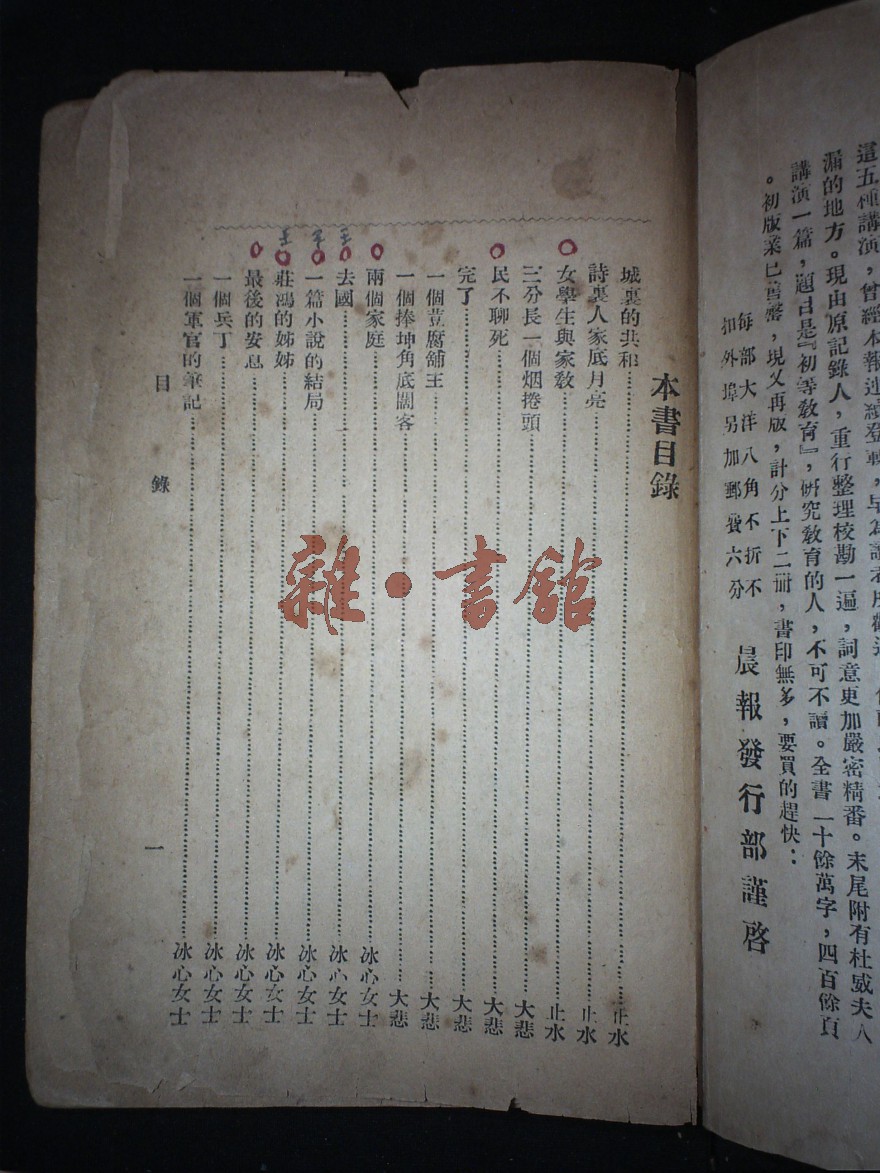 這五種講演,曾經本報連續登載,早為讀者所歡迎
漏的地方。現由原記錄人,重行整理校勘一遍,詞意更加嚴密精番。末尾附有杜威夫人
講演一篇,題目是『初等教育』,研究教育的人,不可不讀。全書一十餘萬字,四百餘頁
。初版業已售罄,現又再版,計分上下二冊,書印無多,要買的趕快:
每部大洋八角不折不
扣外埠另加郵費六分
晨報發行部謹啓
本書目錄
城裏的共和……止水
詩裏人家底月亮……止水
女學生與家敎……止水
三分長一個烟捲頭……大悲
民不聊死……大悲
完了……大悲
一個荳腐舖王……大悲
一個捧坤角底闊客……大悲
兩個家庭……冰心女士
去國……冰心女士
一篇小說的結局……冰心女士
莊鴻的姊姊……冰心女士
最後的安息……冰心女士
一個兵丁……冰心女士
一個軍官的筆記……冰心女士
目錄
一
雜·書館